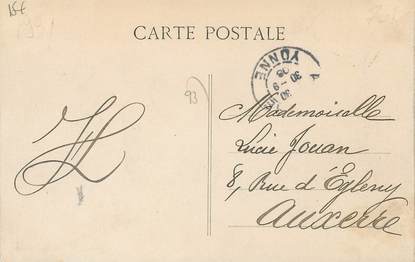 15€
CARTE POSTALE
YONNE
30 - 9
93
Mademoiselle
Lucie Jouan
8, Rue d'Égleny
Auxerre